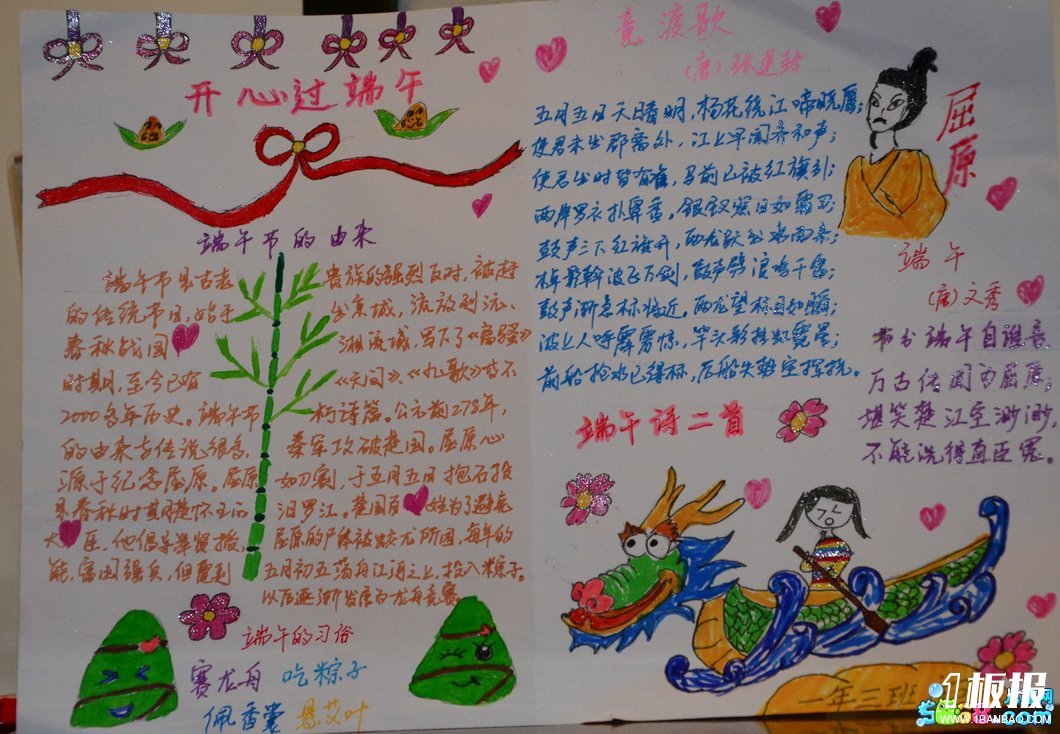 开心过端午
端午节的由来
端午节是古老
的传统节日,始于
春秋战国
时期,至今已有
2000多年历史。端午节
的由来与传说很多,
源于纪念屈原。屈原
是春秋时期楚怀王的
大臣,他倡导举贤授
能,富国强兵,但遭到
贵族的强烈反对,被赶
出京城,流放到沅、
湘流域,写下了《离骚》
《天问》、《九歌》等不
朽诗篇。公元前278年,
秦军攻破楚国。屈原心
如刀割,于五月五日抱石投
汨罗江。楚国百姓为了避免
屈原的尸体被蛟龙所困,每年的
五月初五荡舟江河之上,投入粽子。
以后逐渐发展为龙舟竞赛
端午的习俗
赛龙舟 吃粽子
佩香囊 悬艾叶
竞渡歌
(唐)张建封
五月五日天晴明,杨花绕江啼晓鹰;
使君未出郡斋外,江上早闻齐和声;
使君出时皆有准,马前已被红旗引;
两岸罗衣扑鼻香,银钗照日如霜刃;
鼓声三下红旗开,两龙跃出浮水来;
棹影斡波飞万剑,鼓声劈浪鸣千雷;
鼓声渐急标将近,两龙望标目如瞬;
波上人呼霹雳惊,竿头彩挂虹霓晕;
前船抢水已得标,后船失势空挥挠。
端午诗二首
屈原
端午
(唐)文秀
节分端午自谁言,
万古传闻为屈原;
堪笑楚江空渺渺,
不能洗得直臣冤。
一年三班
1板报
WWW.1BANBAO.COM